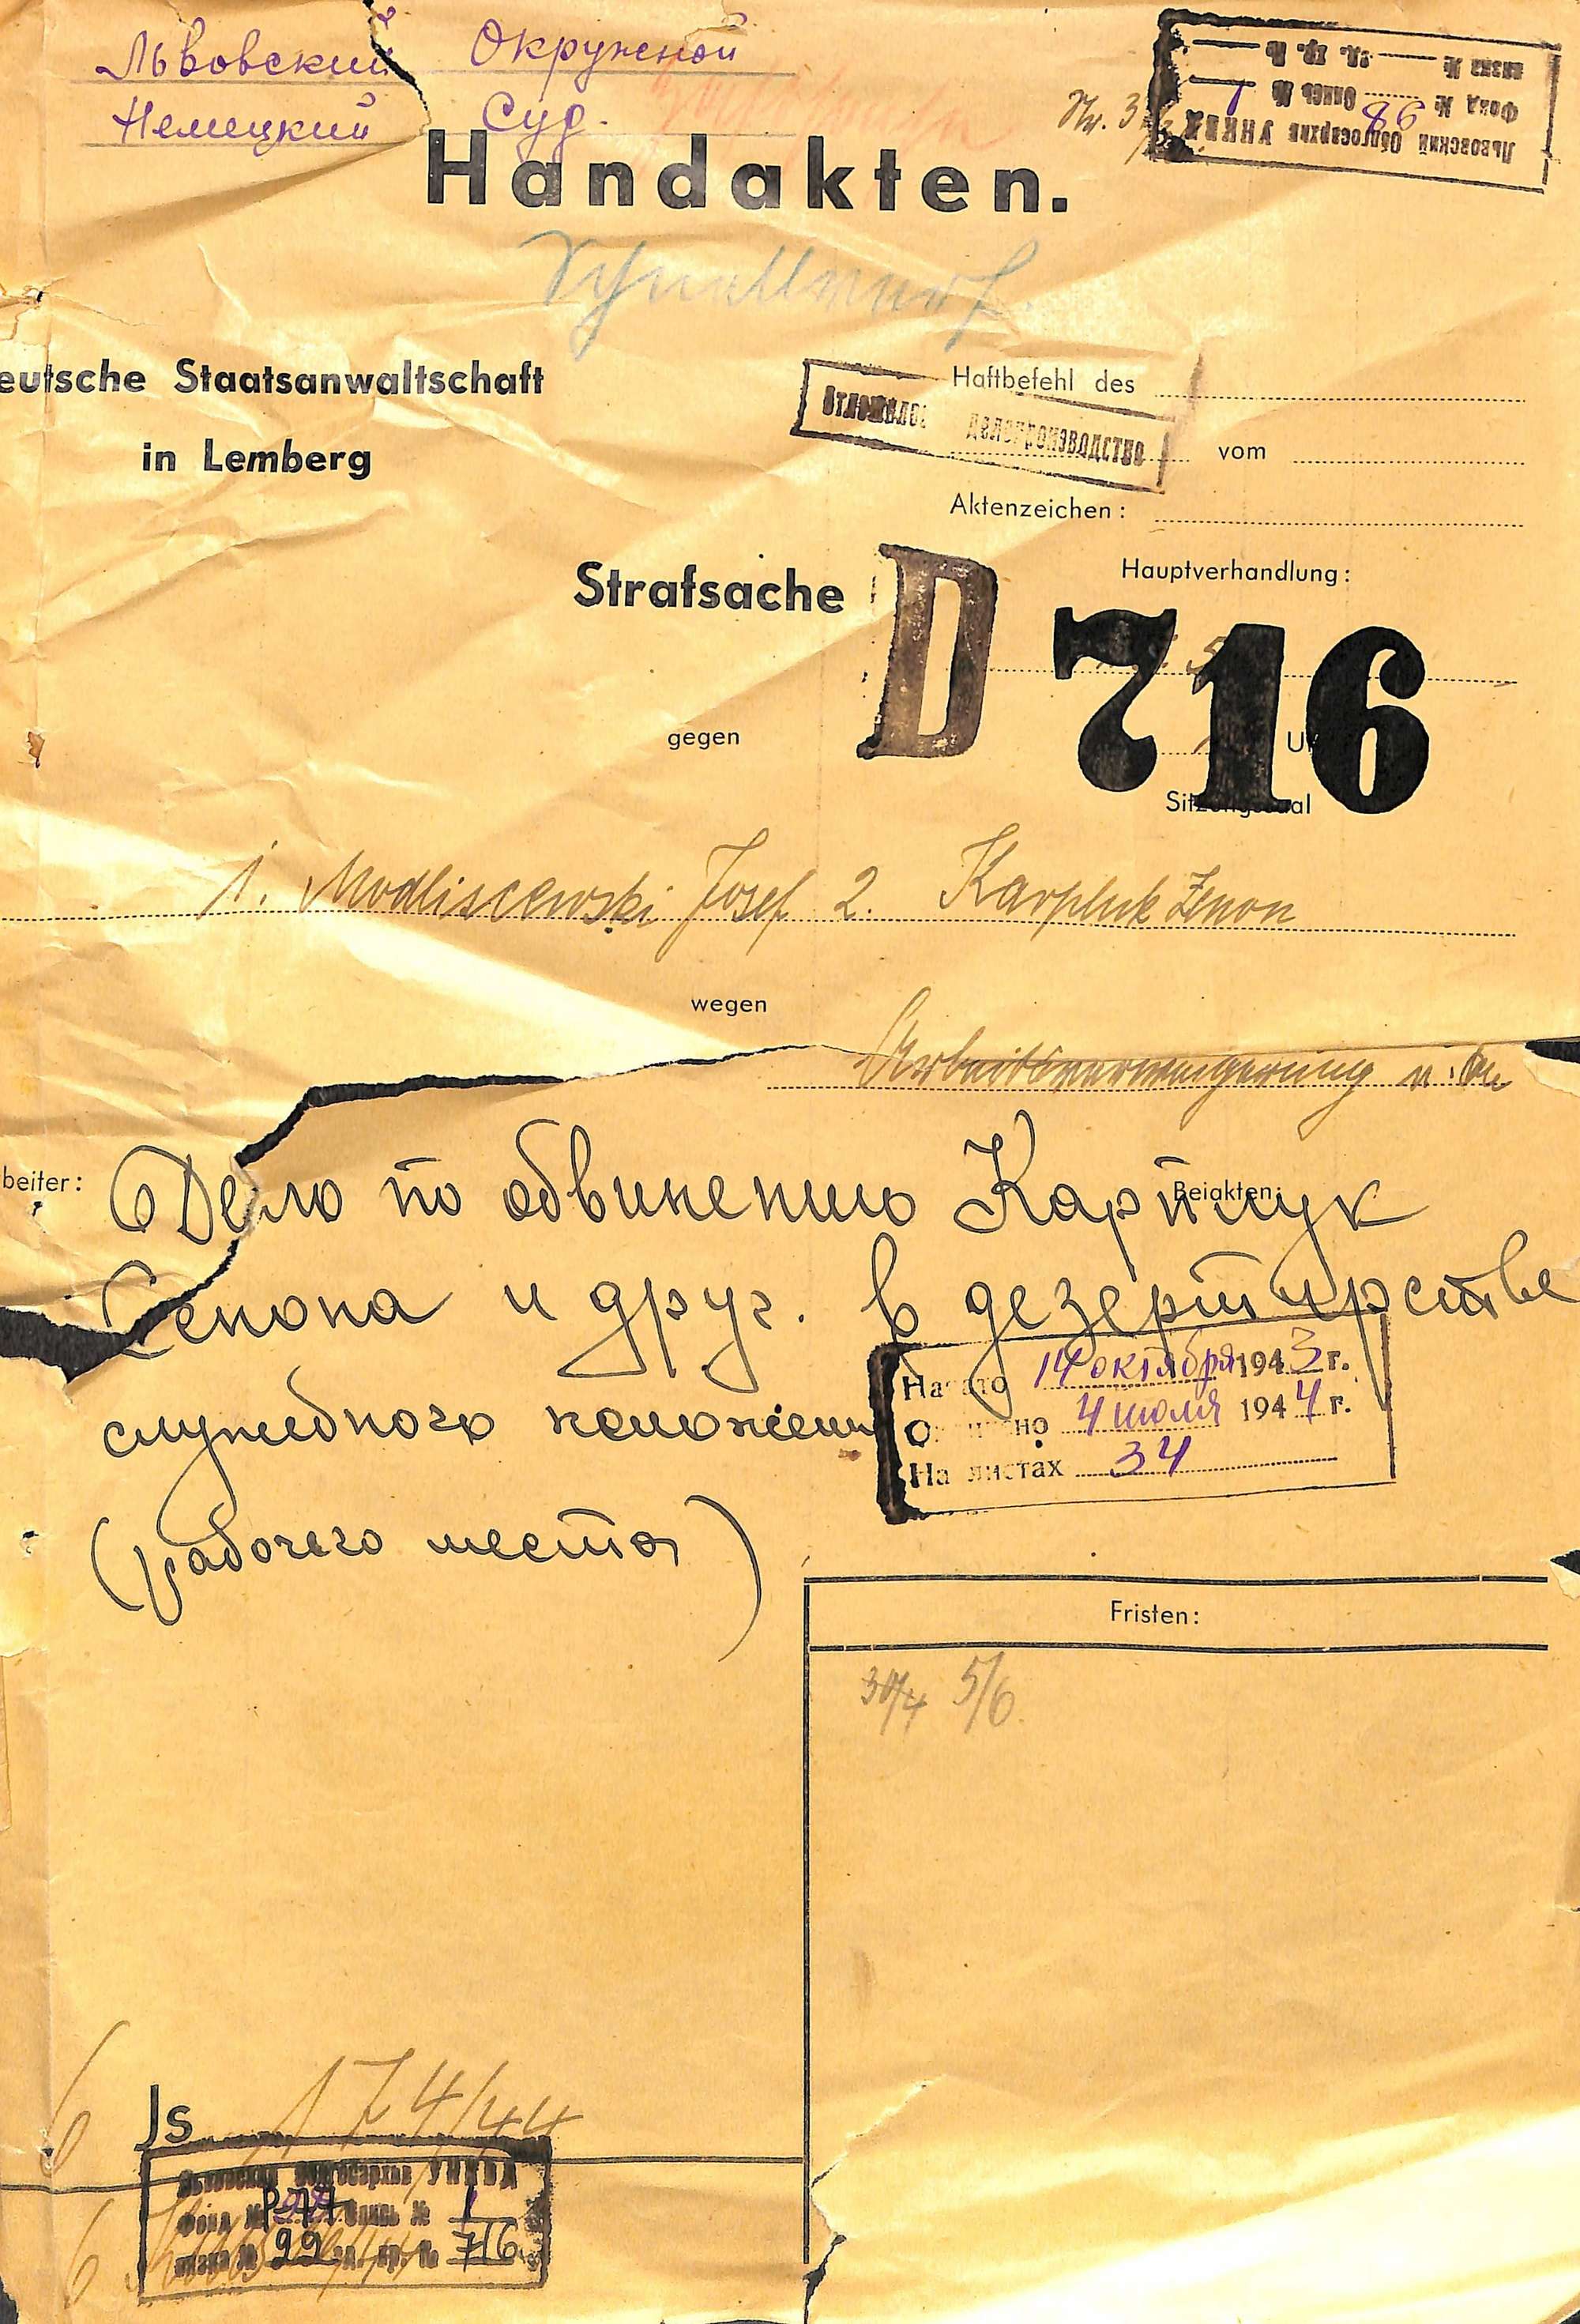 Львовский Окружной
Немецкий Суд.
Львовский Облгосархив УНКВД
Фонд № 86 Опись № 1
вязка № ед. хр. №
Handakten.
eutsche Staatsanwaltschaft
in Lemberg
Haftbefehl des
делопроизводство
vom
Aktenzeichen:
Strafsache
D 716
Hauptverhandlung:
gegen
Sitzungssaal
1. Modliscewski Josef 2. Karpluk Zenon
wegen
Arbeitsverweigerung
beiter:
Beiakten:
Дело по обвинению Карплук
Сенона и друг. в дезертирстве
служебного положения
(рабочего места)
Начато 14 октября 1943 г.
Окончено 4 июля 1944 г.
На листах 34
Fristen:
30/4 5/6.
6 Js 174/44
Львовский Облгосархив УНКВД
Фонд № Р-77 Опись № 1
вязка № 22 ед. хр. № 716